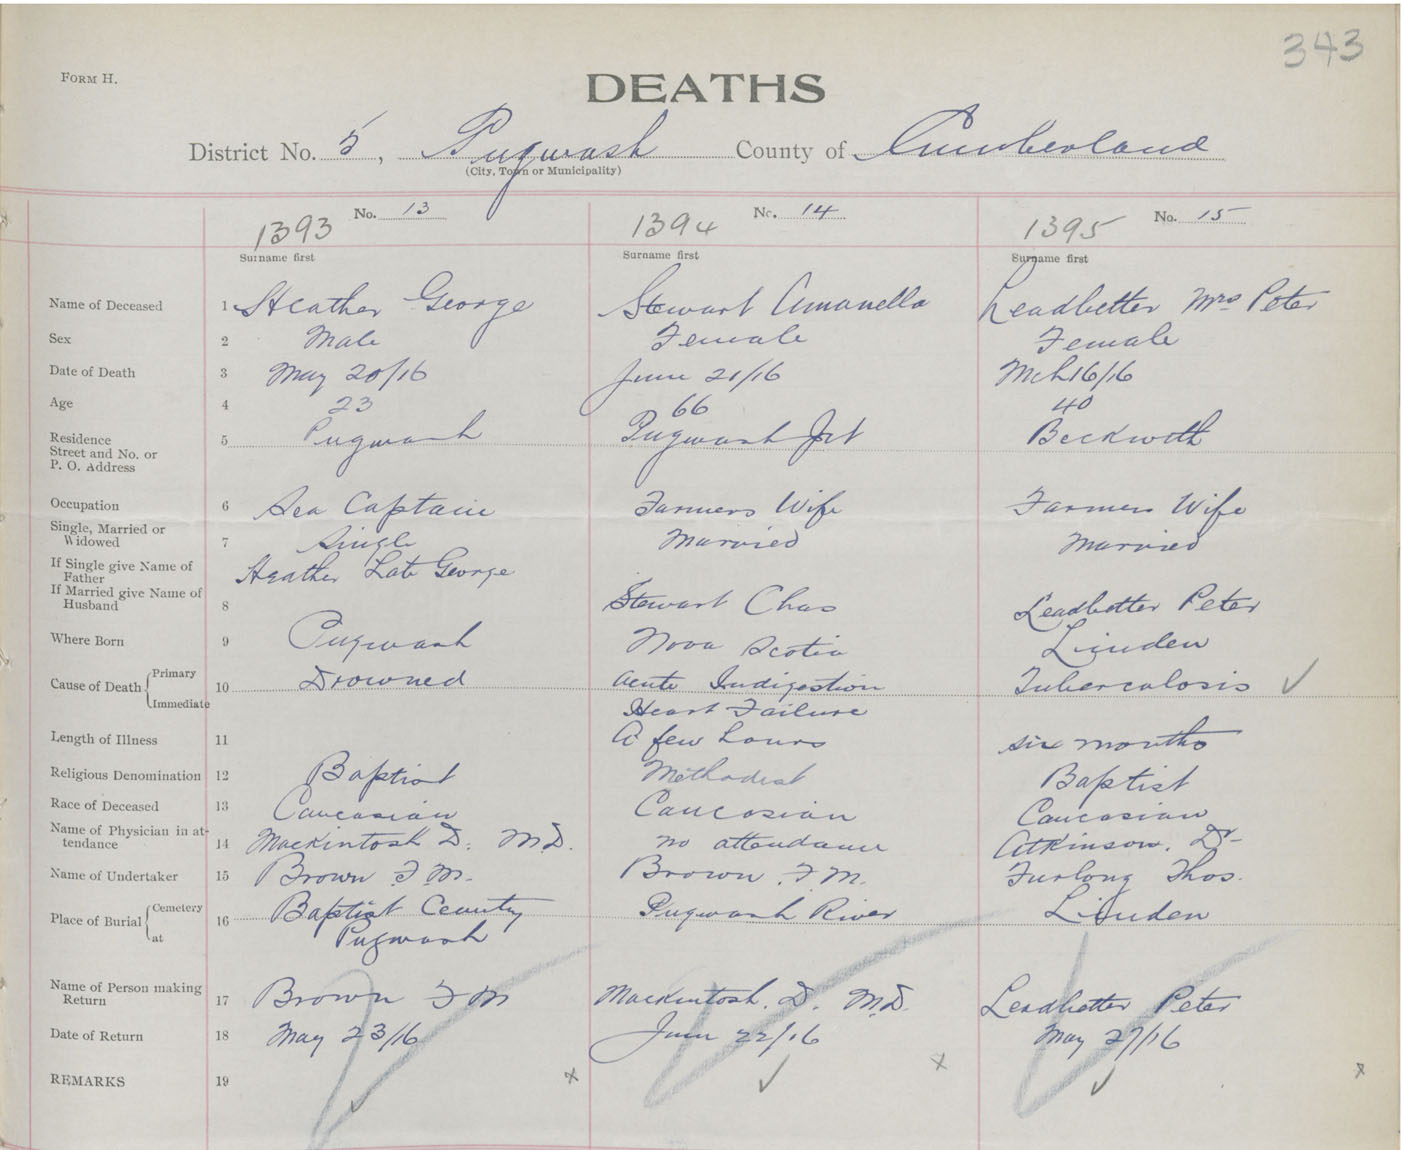 343
FORM H.
DEATHS
District No. 5, Pugwash County of Cumberland
(City, Town or Municipality)
No. 13 No. 14 No. 15
1393 1394 1395
Surname first Surname first Surname first
Name of Deceased 1 Heather George Stewart Amanella Leadbetter Mrs Peter
Sex 2 Male Female Female
Date of Death 3 May 20/16 June 21/16 Mch 16/16
Age 4 23 66 40
Residence 5 Pugwash Pugwash Jct Beckwith
Street and No. or
P. O. Address
Occupation 6 Sea Captain Farmers Wife Farmers Wife
Single, Married or
Widowed 7 Single Married Married
If Single give Name of
Father Heather Late George
If Married give Name of
Husband 8 Stewart Chas Leadbetter Peter
Where Born 9 Pugwash Nova Scotia Linden
Cause of Death Primary 10 Drowned Acute Indigestion Tuberculosis
Immediate Heart Failure
Length of Illness 11 A few hours six months
Religious Denomination 12 Baptist Methodist Baptist
Race of Deceased 13 Caucasian Caucasian Caucasian
Name of Physician in at-
tendance 14 Mackintosh D. M.D. no attendance Atkinson. Dr
Name of Undertaker 15 Brown F.M. Brown F.M. Furlong Thos.
Place of Burial Cemetery 16 Baptist Pugwash River Linden
at Pugwash
Name of Person making
Return 17 Brown F M Mackintosh. D. M.D. Leadbetter Peter
Date of Return 18 May 23/16 June 22/16 May 27/16
REMARKS 19 x x x